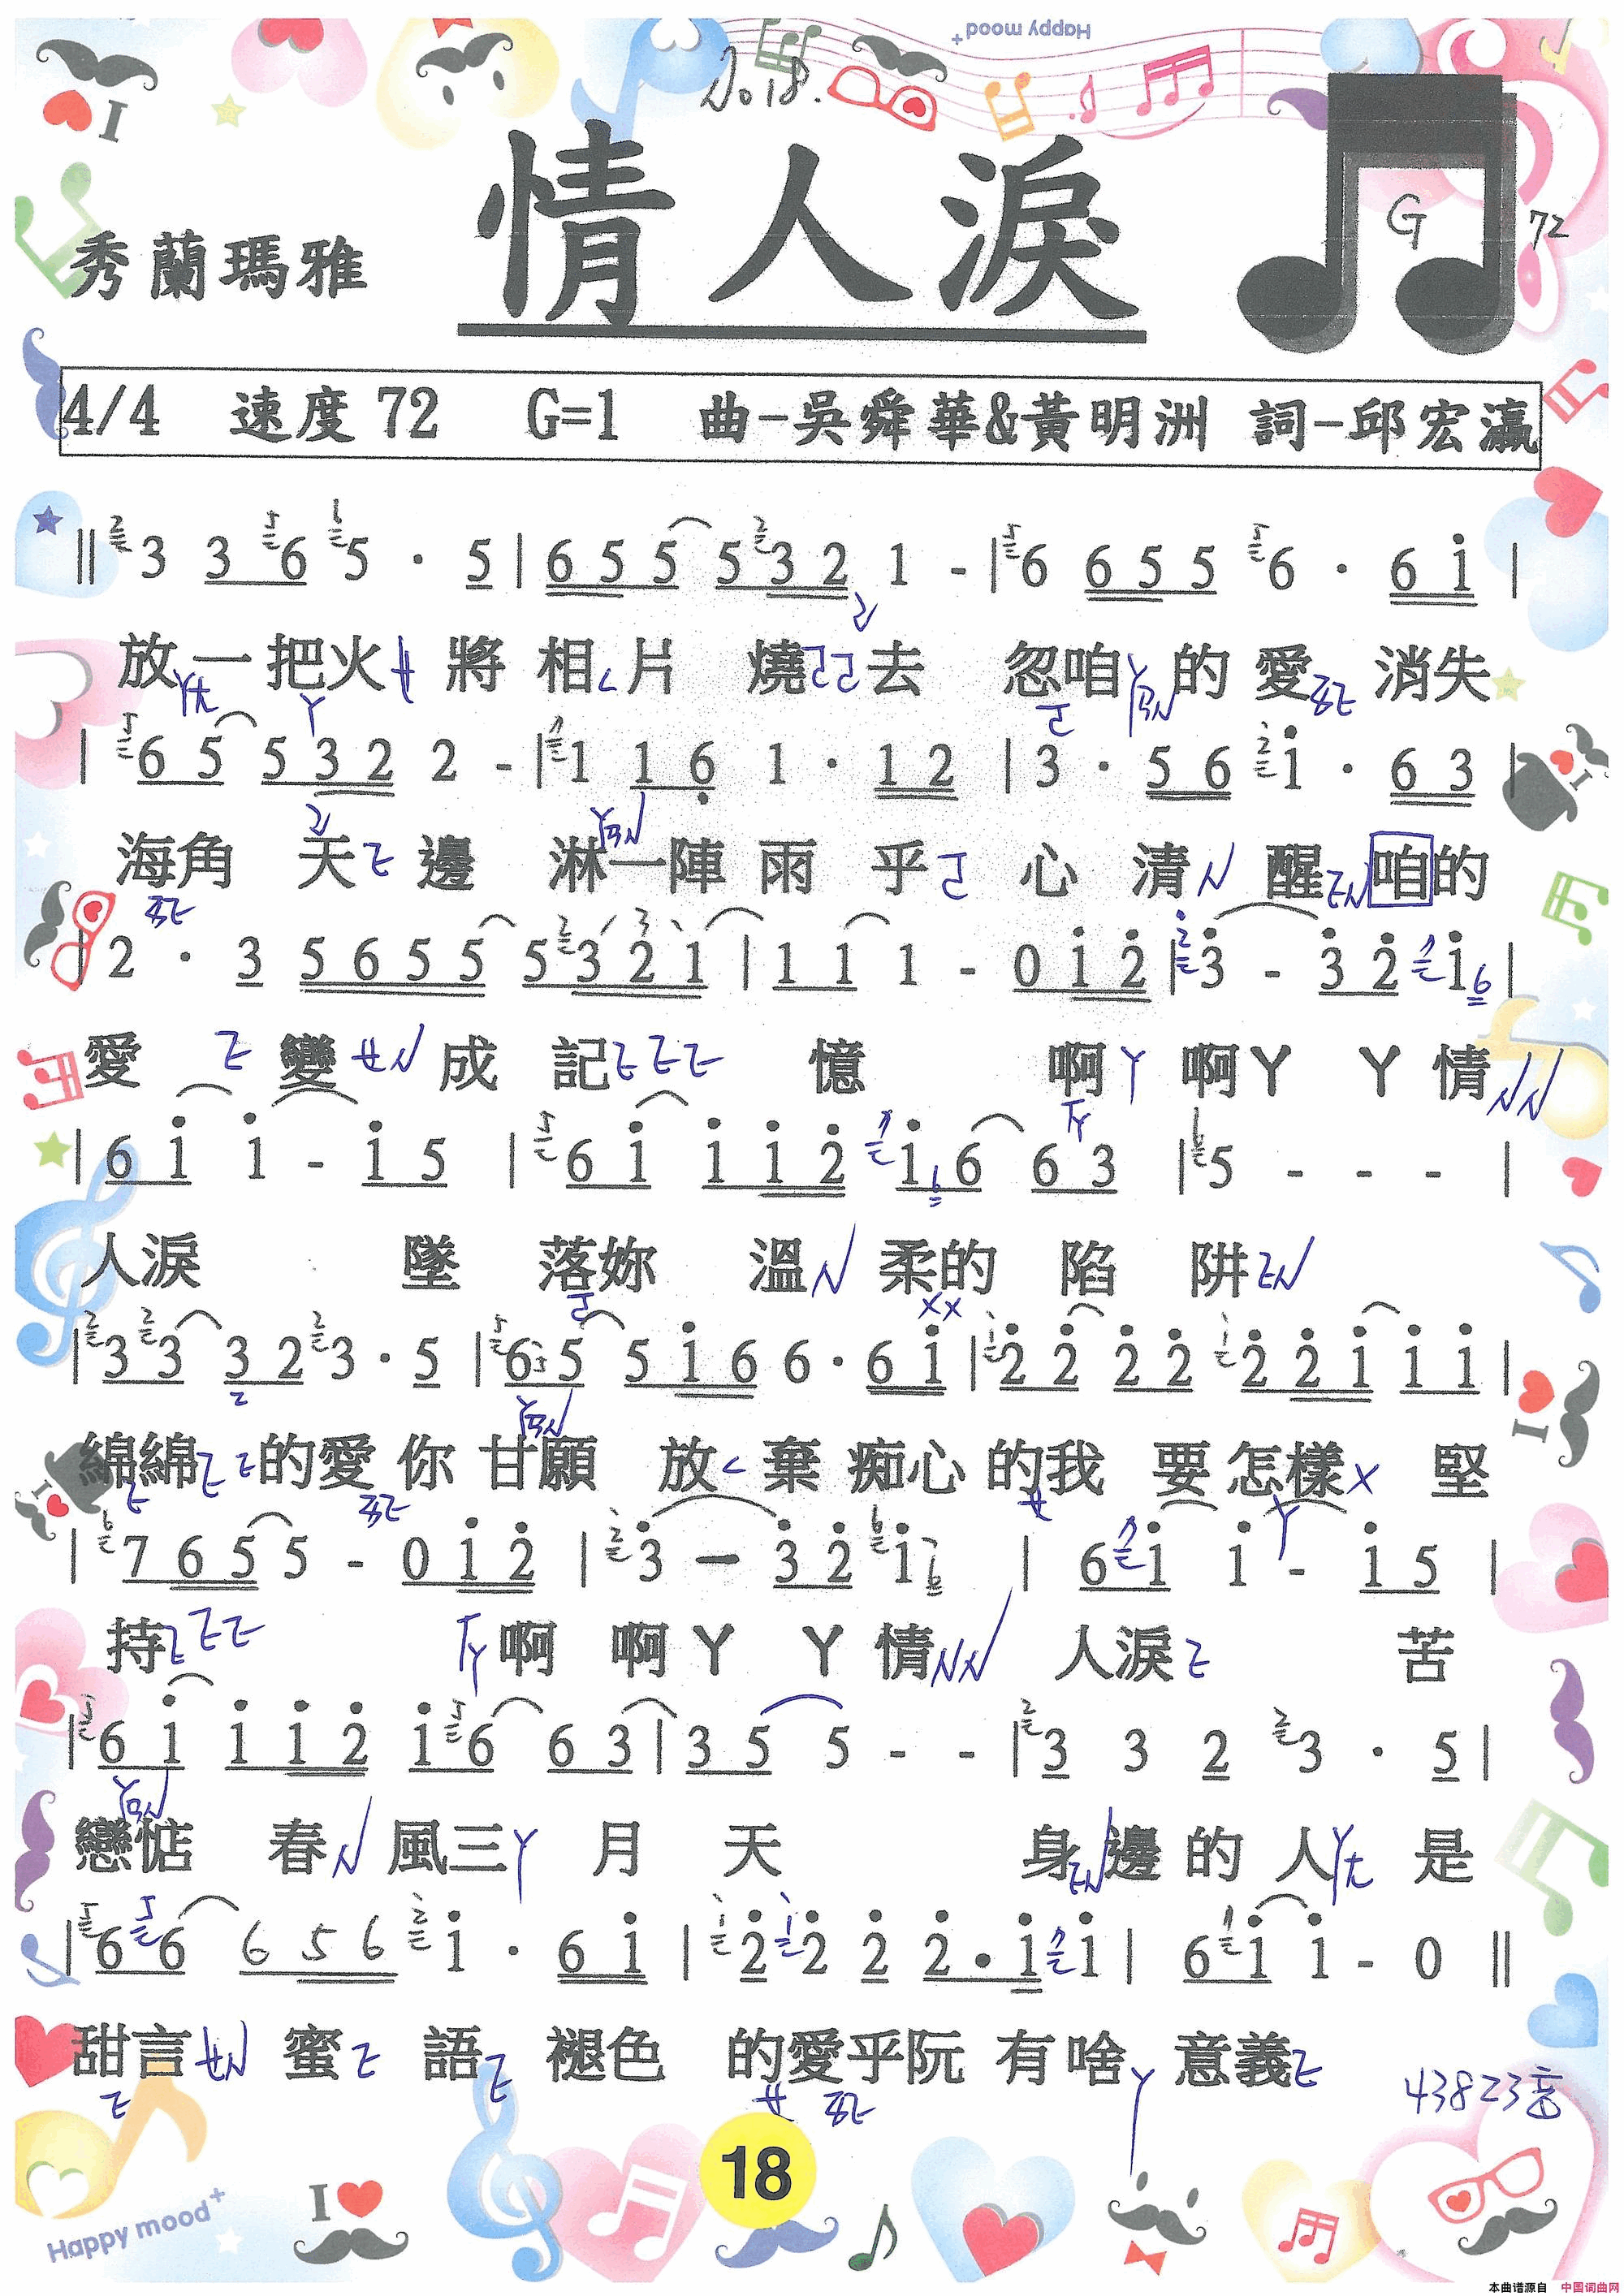 Happy mood+
No 18.
情人淚
G
72
秀蘭瑪雅
4/4 速度 72 G=1 曲-吳舜華&黃明洲 詞-邱宏瀛
‖ 3 3 6 5 · 5 | 6 5 5 5 3 2 1 - | 6 6 5 5 6 · 6 i |
放一把火 將 相片 燒 去 忽咱 的 愛 消失
| 6 5 5 3 2 2 - | 1 1 6 1 · 1 2 | 3 · 5 6 i · 6 3 |
海角 天 邊 淋一陣 雨 乎 心 清 醒 咱的
| 2 · 3 5 6 5 5 5 3 2 1 | 1 1 1 - 0 i 2 | 3 - 3 2 i 6 |
愛 變 成 記 憶 啊 啊ㄚ ㄚ 情
| 6 i i - i 5 | 6 i i i 2 i 6 6 3 | 5 - - - |
人淚 墜 落妳 溫 柔的 陷 阱
| 3 3 3 2 3 · 5 | 6 5 5 i 6 6 · 6 i | 2 2 2 2 2 2 i i i |
綿綿 的愛 你 甘願 放 棄 痴心 的我 要 怎樣 堅
| 7 6 5 5 - 0 i 2 | 3 - 3 2 i 6 | 6 i i - i 5 |
持 啊 啊ㄚ ㄚ 情 人淚 苦
| 6 i i i 2 i 6 6 3 | 3 5 5 - - | 3 3 2 3 · 5 |
戀惦 春 風三 月 天 身 邊 的 人 是
| 6 6 6 5 6 i · 6 i | 2 2 2 2 · i i | 6 i i - 0 ‖
甜言 蜜 語 褪色 的愛乎阮 有啥 意義
43823音
18
I
Happy mood+
本曲谱源自 中国词曲网